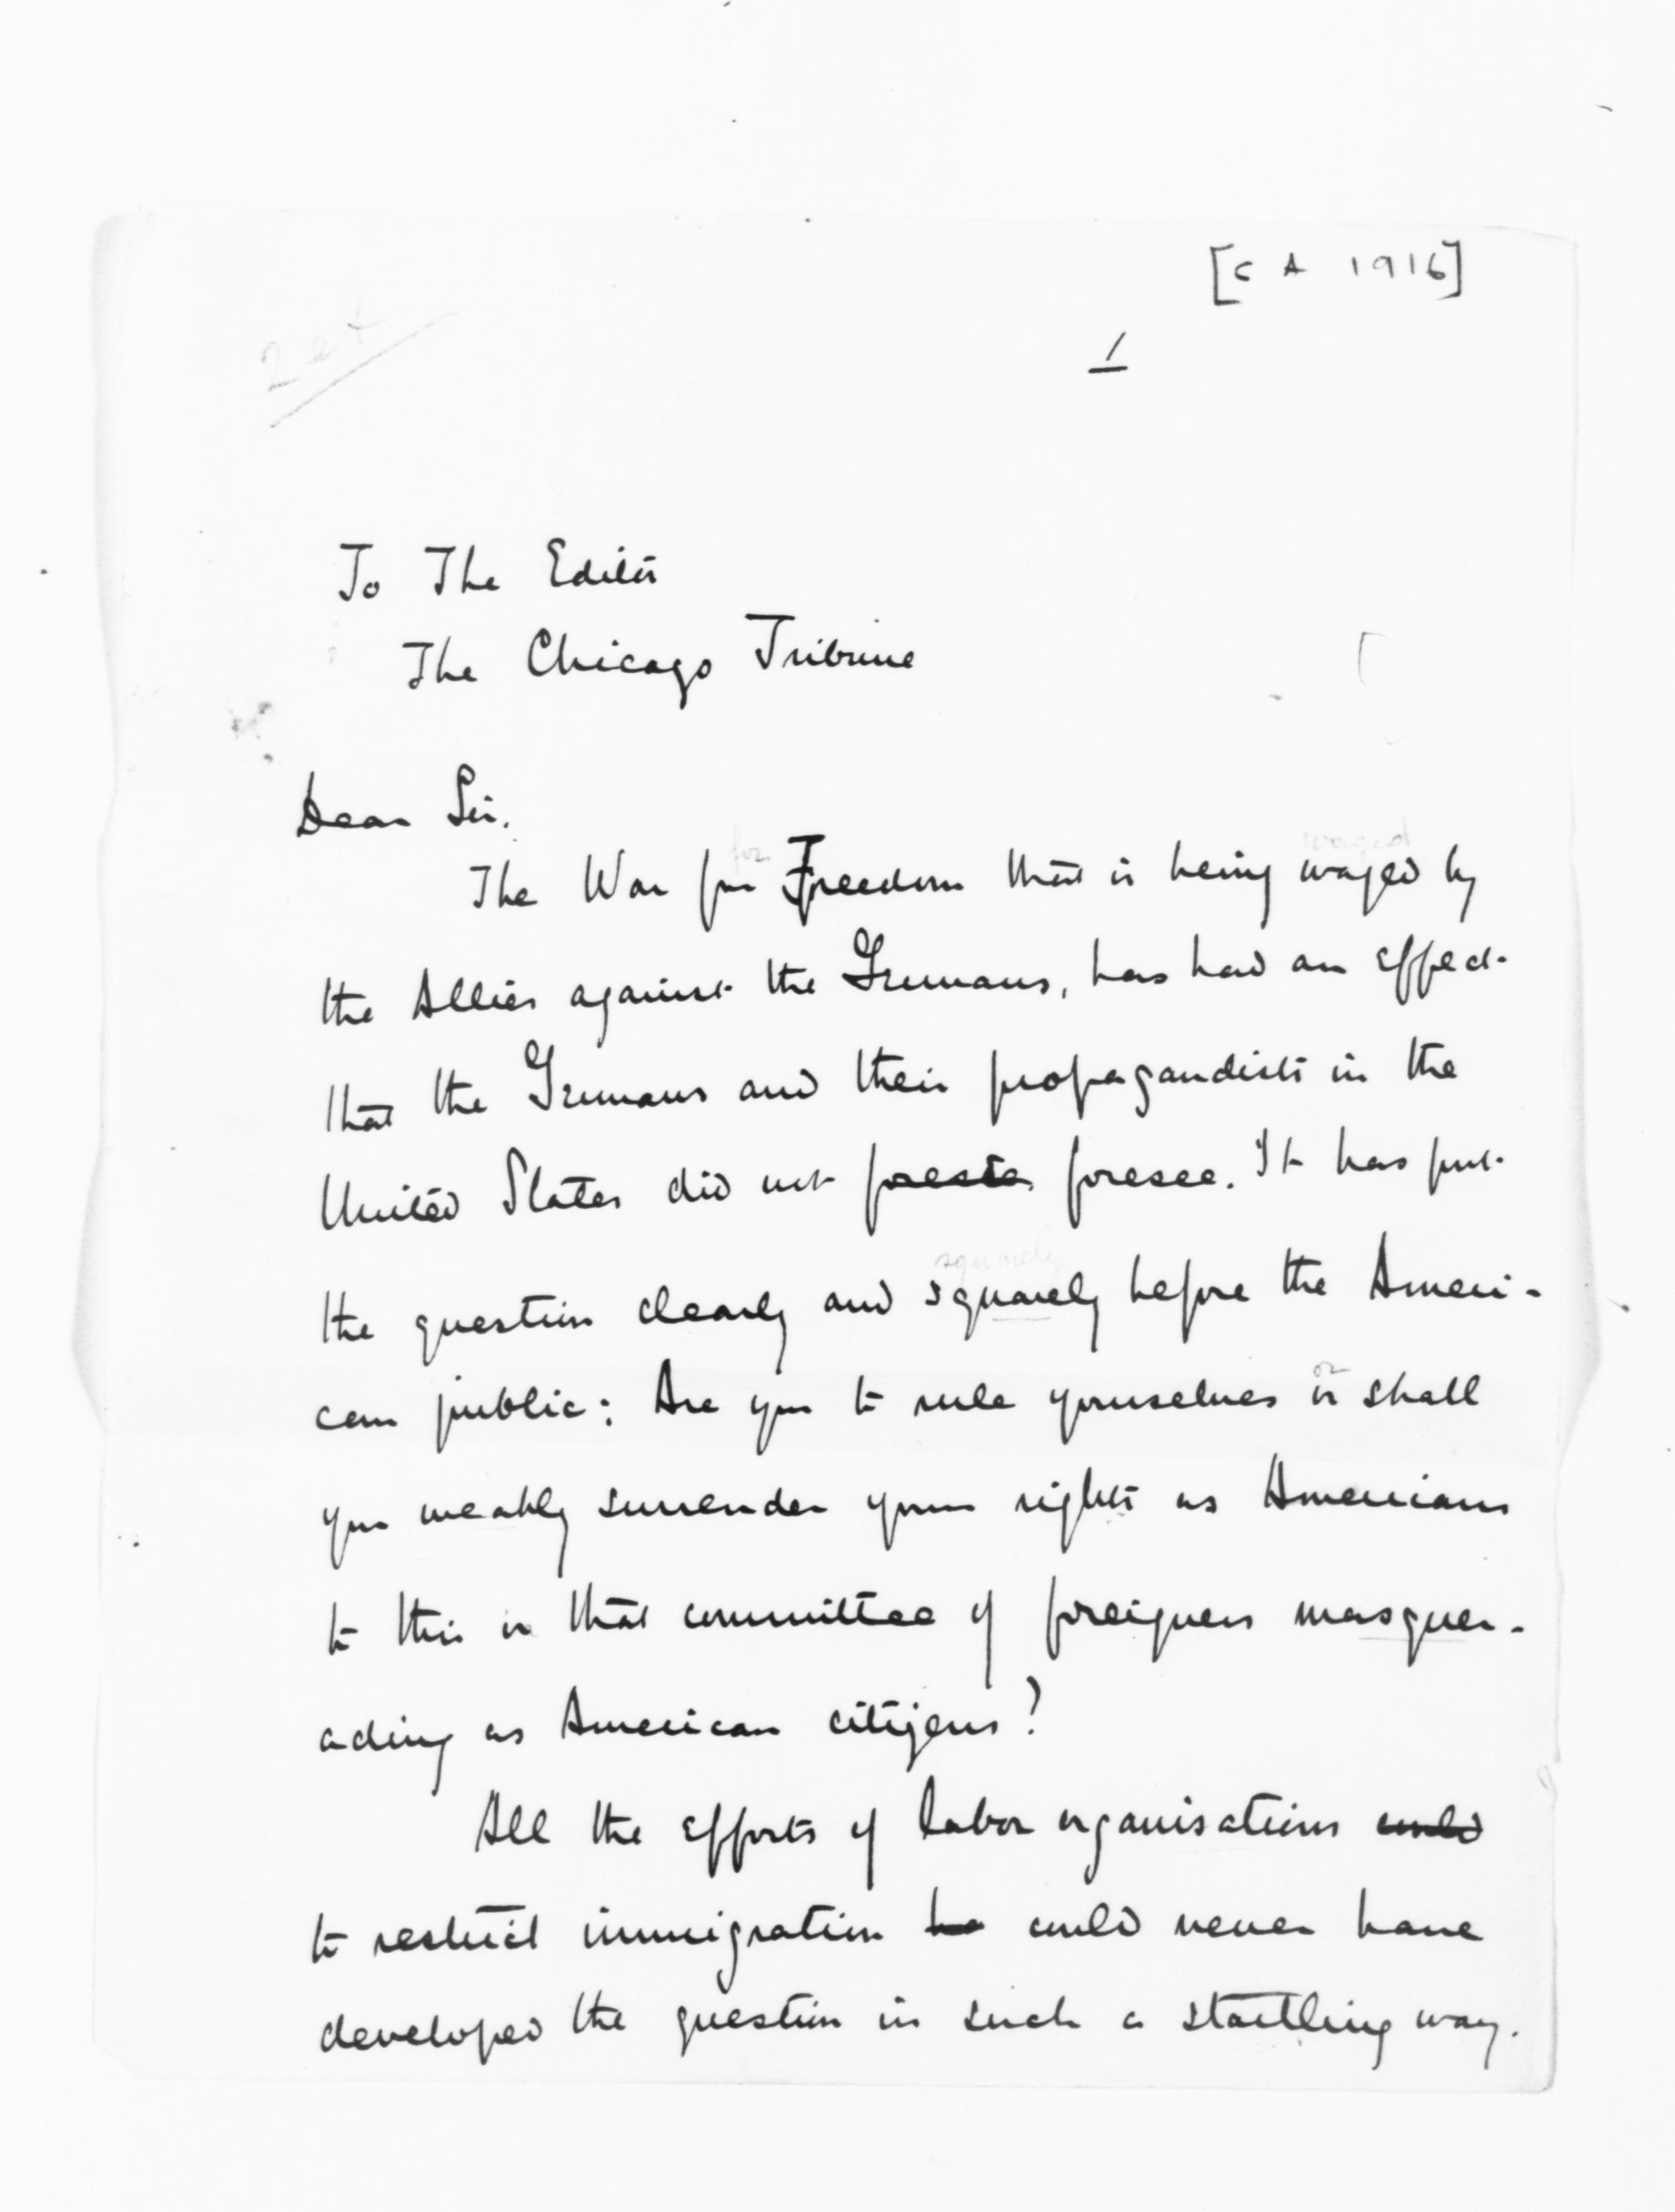 [CA 1916]
1
To The Editor
The Chicago Tribune
Dear Sir.
for waged
The War for Freedom that is being waged by
the Allies against the Germans, has had an effect
that the Germans and their propagandists in the
United States did not foresee. It has put
squarely
the question clearly and squarely before the Ameri-
or
can public: Are you to rule yourselves or shall
you weakly surrender your rights as Americans
to this or that committee of foreigners masquer-
ading as American citizens?
All the efforts of labor organisations could
to restrict immigration ha could never have
developed the question in such a startling way.